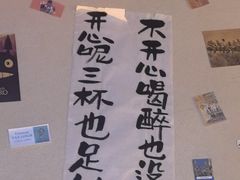 不开心喝醉也没
开心呢三杯也足